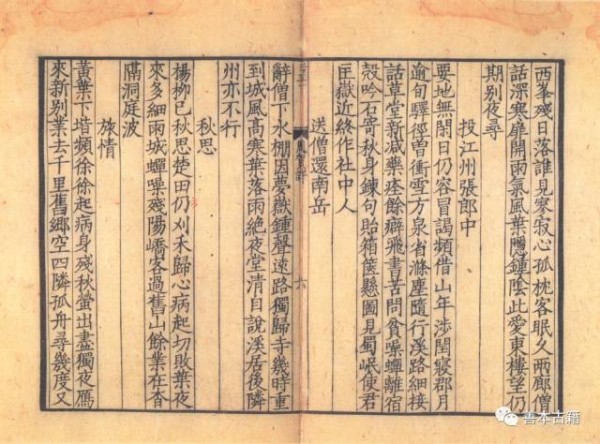 西峯殘日落誰見寥寂心孤枕客眠久兩廊僧
話深寒扉開雨氣風葉隱鍾陰此愛東樓望仍
期別夜尋
投江州張郎中
要地無閑日仍容冒謁頻借山年涉閏寢郡月
逾旬驛徑曾衝雪方泉省滌塵隨行溪路細接
話草堂新減藥痊餘癖飛書苦問貧噪蟬離宿
殼吟石寄秋身鍊句貽箱篋懸圖見蜀岷使君
匡嶽近終作社中人
送僧還南岳
六
辭僧下水棚因夢嶽鍾聲遠路獨歸寺幾時重
到城風高寒葉落雨絕夜堂清目說溪居後隣
州亦不行
秋思
楊柳已秋思楚田仍刈禾歸心病起切敗葉夜
來多細雨城蟬噪殘陽嶠客過舊山餘業在杳
隔洞庭波
旅情
黃葉下堦頻徐徐起病身殘秋螢出盡獨夜鴈
來新別業去千里舊鄉空四隣孤舟尋幾度又
善本古籍